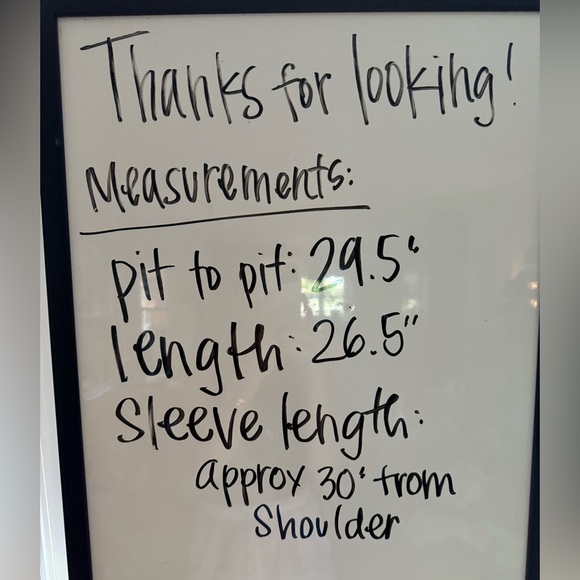 Thanks for looking!
Measurements:
pit to pit: 29.5"
length: 26.5"
Sleeve length:
approx 30" from
Shoulder